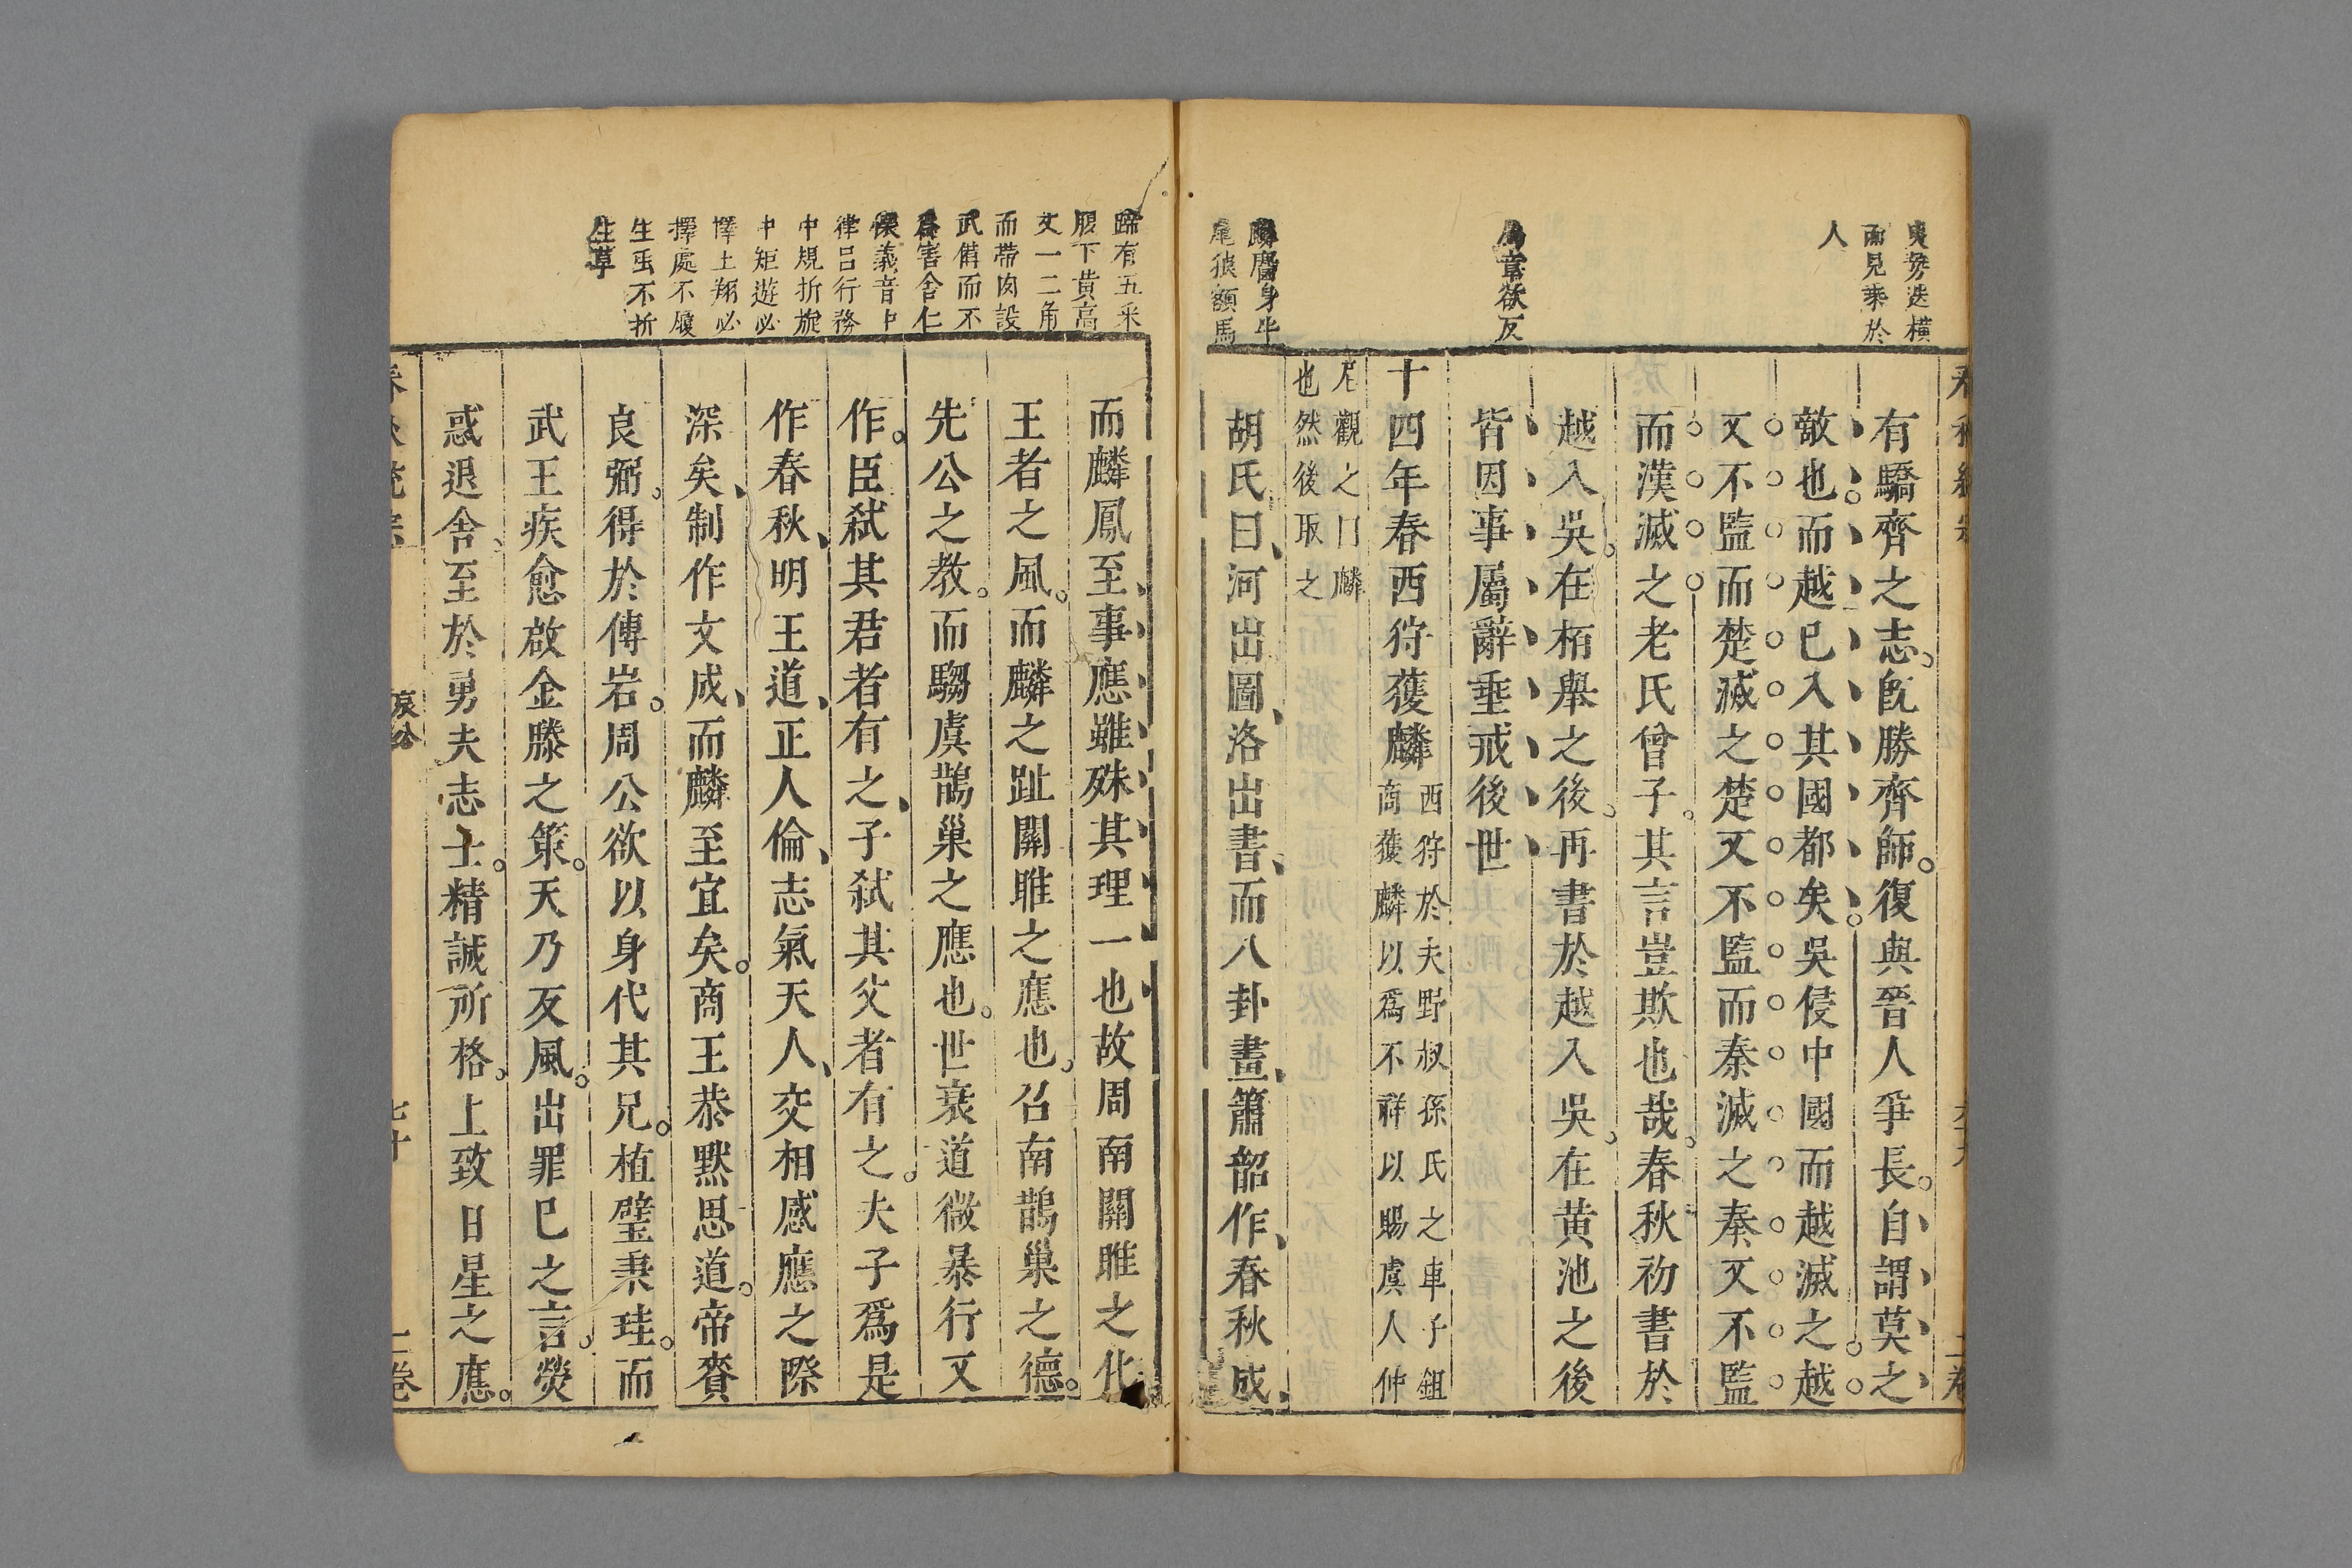 夷勢迭橫
而見乘於
人
有驕齊之志既勝齊師復與晉人爭長自謂莫之
敵也而越已入其國都矣吳侵中國而越滅之越
又不監而楚滅之楚又不監而秦滅之秦又不監
而漢滅之老氏曾子其言豈欺也哉春秋初書於
越入吳在栢舉之後再書於越入吳在黄池之後
皆因事屬辭垂戒後世
十四年春西狩獲麟
西狩於夫野叔孫氏之車子鉏
商獲麟以爲不祥以賜虞人仲
尼觀之曰麟
也然後取之
麟麕身牛
尾狼額馬
胡氏曰河出圖洛出書而八卦畫簫韶作春秋成
蹄有五采
腹下黄高
丈一二角
而帶肉設
武備而不
爲害含仁
懷義音中
律吕行務
中規折旋
中矩遊必
擇土翔必
擇處不履
生虫不折
生草
而麟鳳至事應雖殊其理一也故周南關雎之化
王者之風而麟之趾關雎之應也召南鵲巢之德
先公之教而騶虞鵲巢之應也世衰道微暴行又
作臣弑其君者有之子弑其父者有之夫子爲是
作春秋明王道正人倫志氣天人交相感應之際
深矣制作文成而麟至宜矣商王恭默思道帝賚
良弼得於傅岩周公欲以身代其兄植璧秉珪而
武王疾愈啟金縢之策天乃反風出罪已之言熒
惑退舍至於勇夫志士精誠所格上致日星之應
哀公
七十
二巻